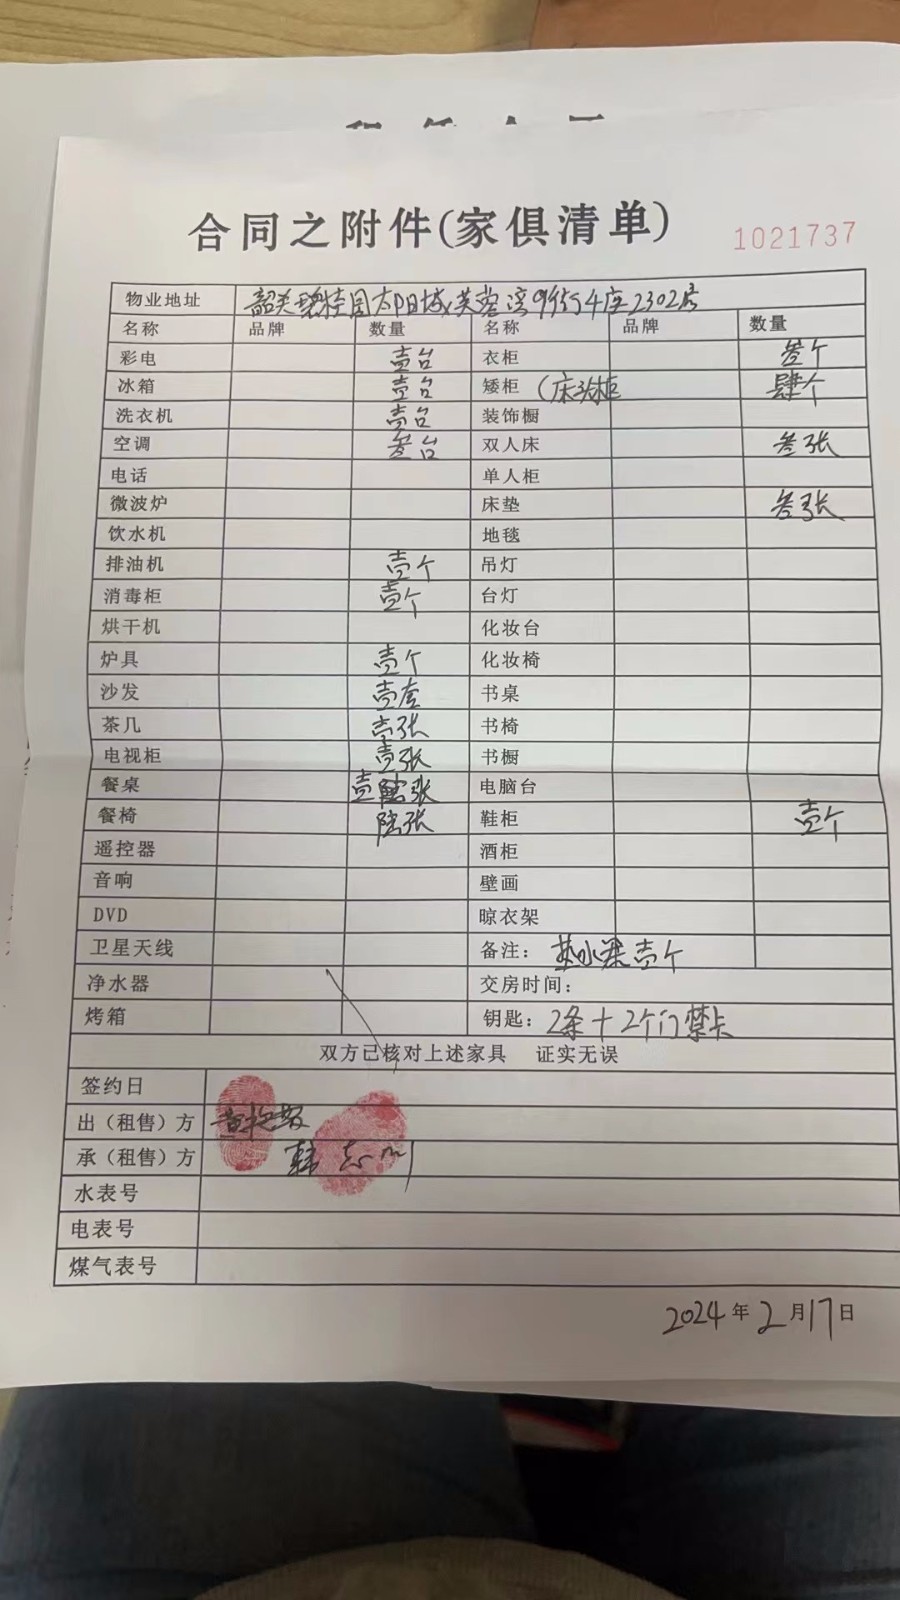 合同之附件(家俱清单)
1021737
物业地址 韶关碧桂园太阳城芙蓉湾9街4座2302房
名称 品牌 数量 名称 品牌 数量
彩电 壹台 衣柜 叁个
冰箱 壹台 矮柜 (床头柜 肆个
洗衣机 壹台 装饰橱
空调 叁台 双人床 叁张
电话 单人柜
微波炉 床垫 叁张
饮水机 地毯
排油机 壹个 吊灯
消毒柜 壹个 台灯
烘干机 化妆台
炉具 壹个 化妆椅
沙发 壹套 书桌
茶几 壹张 书椅
电视柜 壹张 书橱
餐桌 壹张 电脑台
餐椅 陆张 鞋柜 壹个
遥控器 酒柜
音响 壁画
DVD 晾衣架
卫星天线 备注: 热水器壹个
净水器 交房时间:
烤箱 钥匙: 2条+2个门禁卡
双方已核对上述家具 证实无误
签约日
出（租售）方
承（租售）方 韩志
水表号
电表号
煤气表号
2024年2月17日